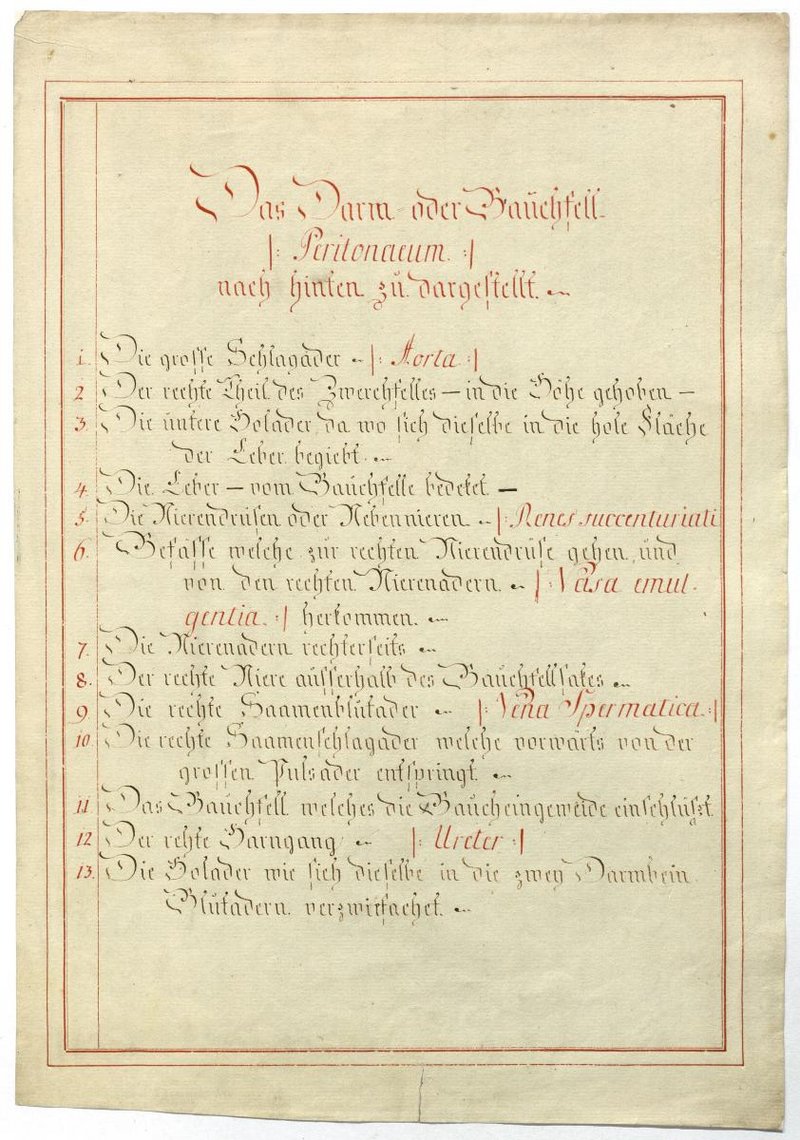 Das Darm- oder Bauchfell.
|: Peritonaeum. :|
nach hinten zu dargestellt.
1. Die grosse Schlagader |: Aorta :|
2 Der rechte Theil des Zwerchfelles — in die Höhe gehoben —
3. Die untere Holader, da wo sich dieselbe in die hole Fläche
der Leber begiebt.
4. Die Leber — vom Bauchfelle bedeket —
5. Die Nierendrüsen oder Nebennieren |: Renes succenturiati
6. Gefässe welche zur rechten Nierendrüse gehen, und
von den rechten Nierenadern. |: Vasa emul-
gentia. :| herkommen.
7. Die Nierenadern rechterseits
8. Der rechte Niere ausserhalb des Bauchfellsakes
9. Die rechte Saamenblutader |: Vena Spermatica. :|
10. Die rechte Saamenschlagader welche vorwärts von der
grossen Pulsader entspringt.
11 Das Bauchfell welches die Baucheingeweide einschlüsst
12 Der rehte Harngang |: Ureter :|
13. Die Holader wie sich dieselbe in die zwey Darmbein
Blutadern. verzwikfachet.